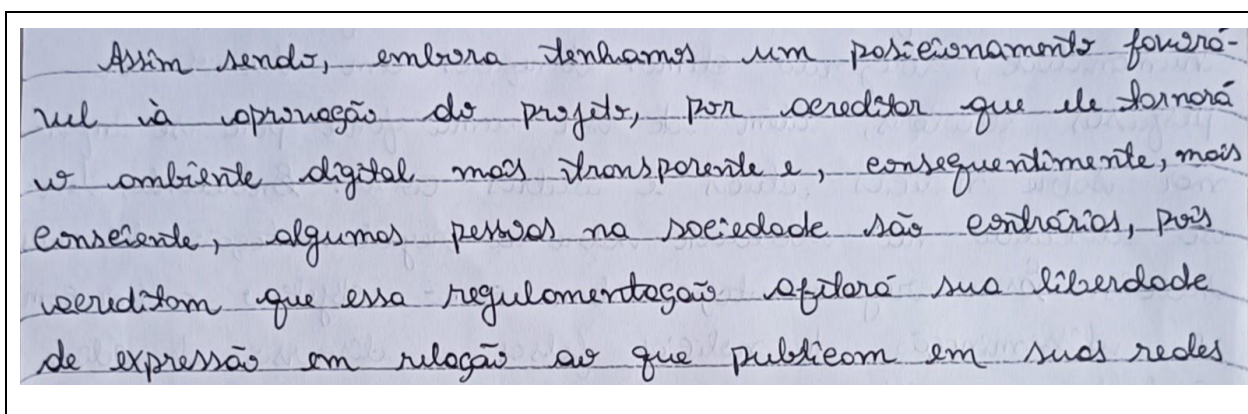 Assim sendo, embora tenhamos um posicionamento favorá-
vel à aprovação do projeto, por acreditar que ele tornará
o ambiente digital mais transparente e, consequentimente, mais
consciente, algumas pessoas na sociedade são contrárias, pois
acreditam que essa regulamentação afetará sua liberdade
de expressão em relação ao que publicam em suas redes